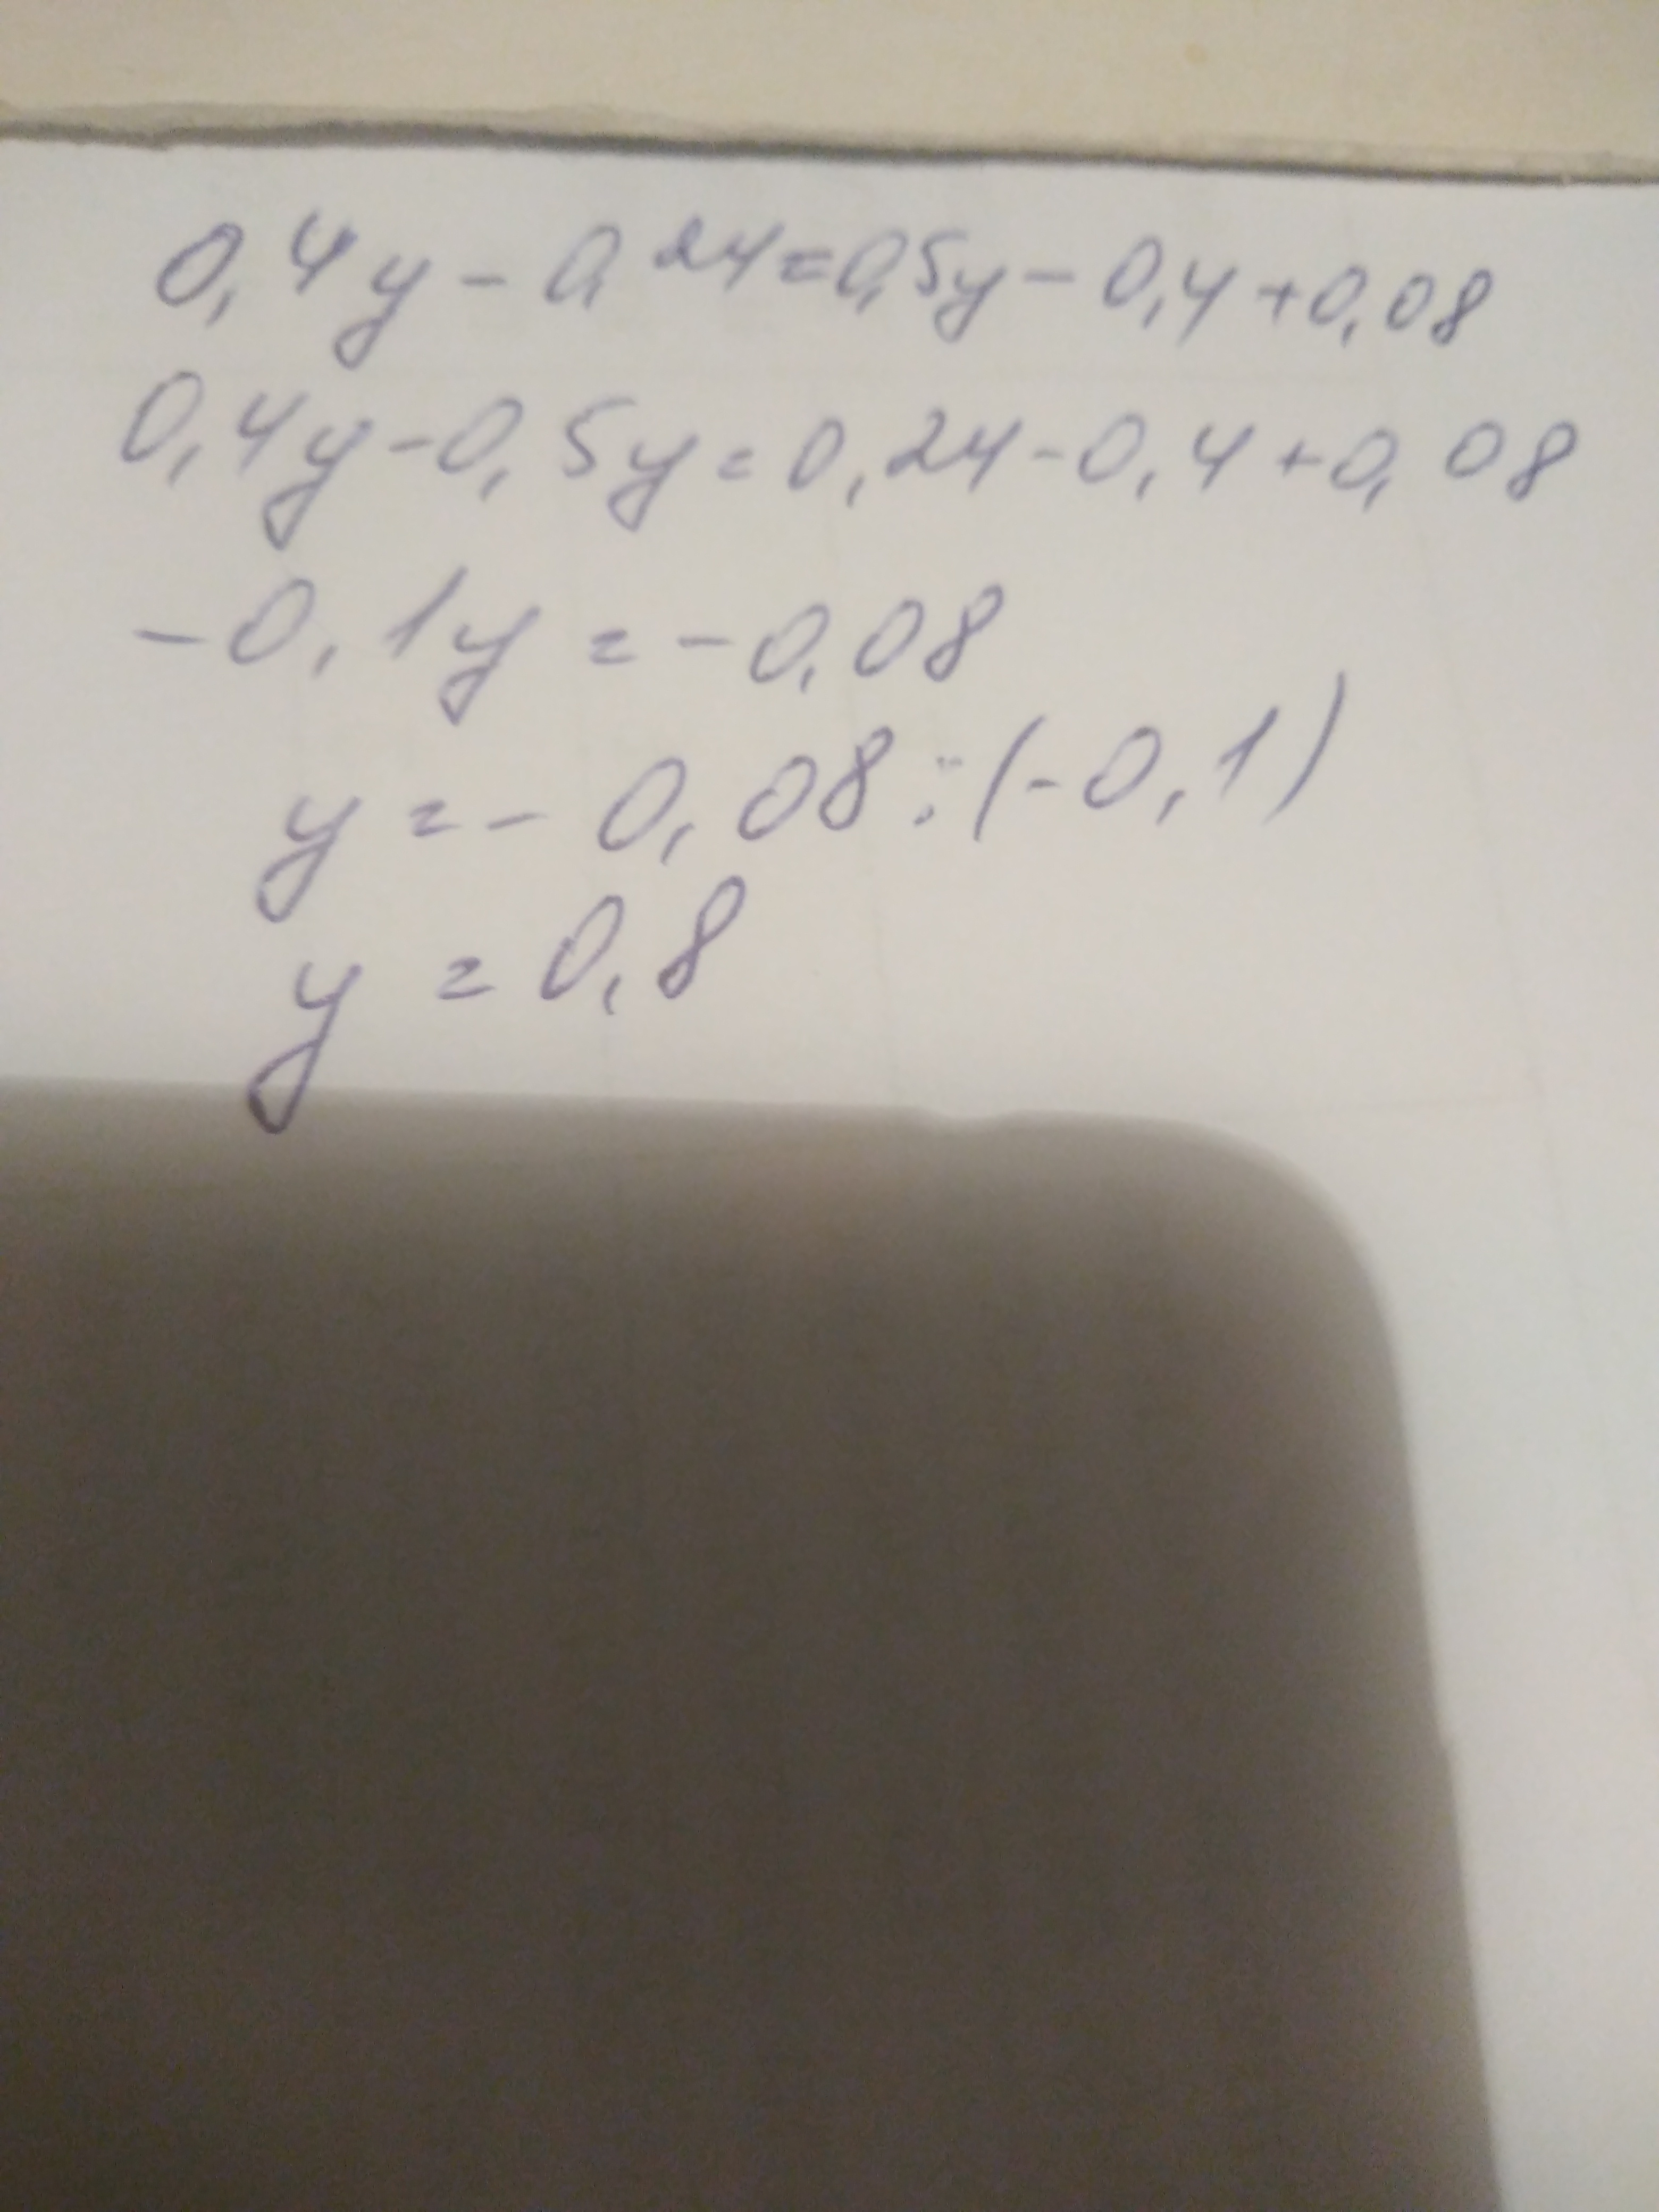 0,4y - 0,24 = 0,5y - 0,4 + 0,08
0,4y - 0,5y = 0,24 - 0,4 + 0,08
-0,1y = -0,08
y = - 0,08 : (-0,1)
y = 0,8